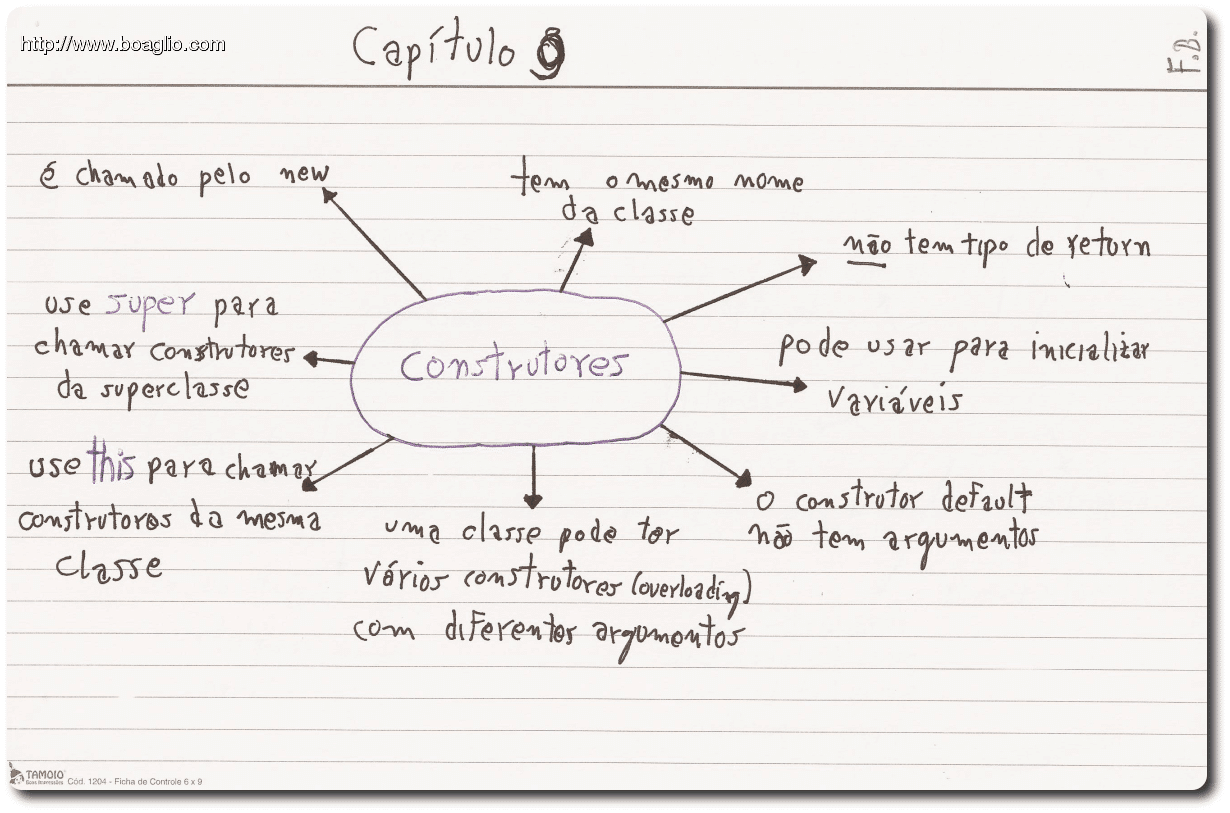 http://www.boaglio.com
Capítulo 9
F.B.
é chamado pelo new
tem o mesmo nome
da classe
não tem tipo de return
use super para
chamar construtores
da superclasse
Construtores
pode usar para inicializar
variáveis
use this para chamar
construtores da mesma
classe
uma classe pode ter
vários construtores (overloading)
com diferentes argumentos
o construtor default
não tem argumentos
TAMOIO
Cód. 1204 - Ficha de Controle 6 x 9